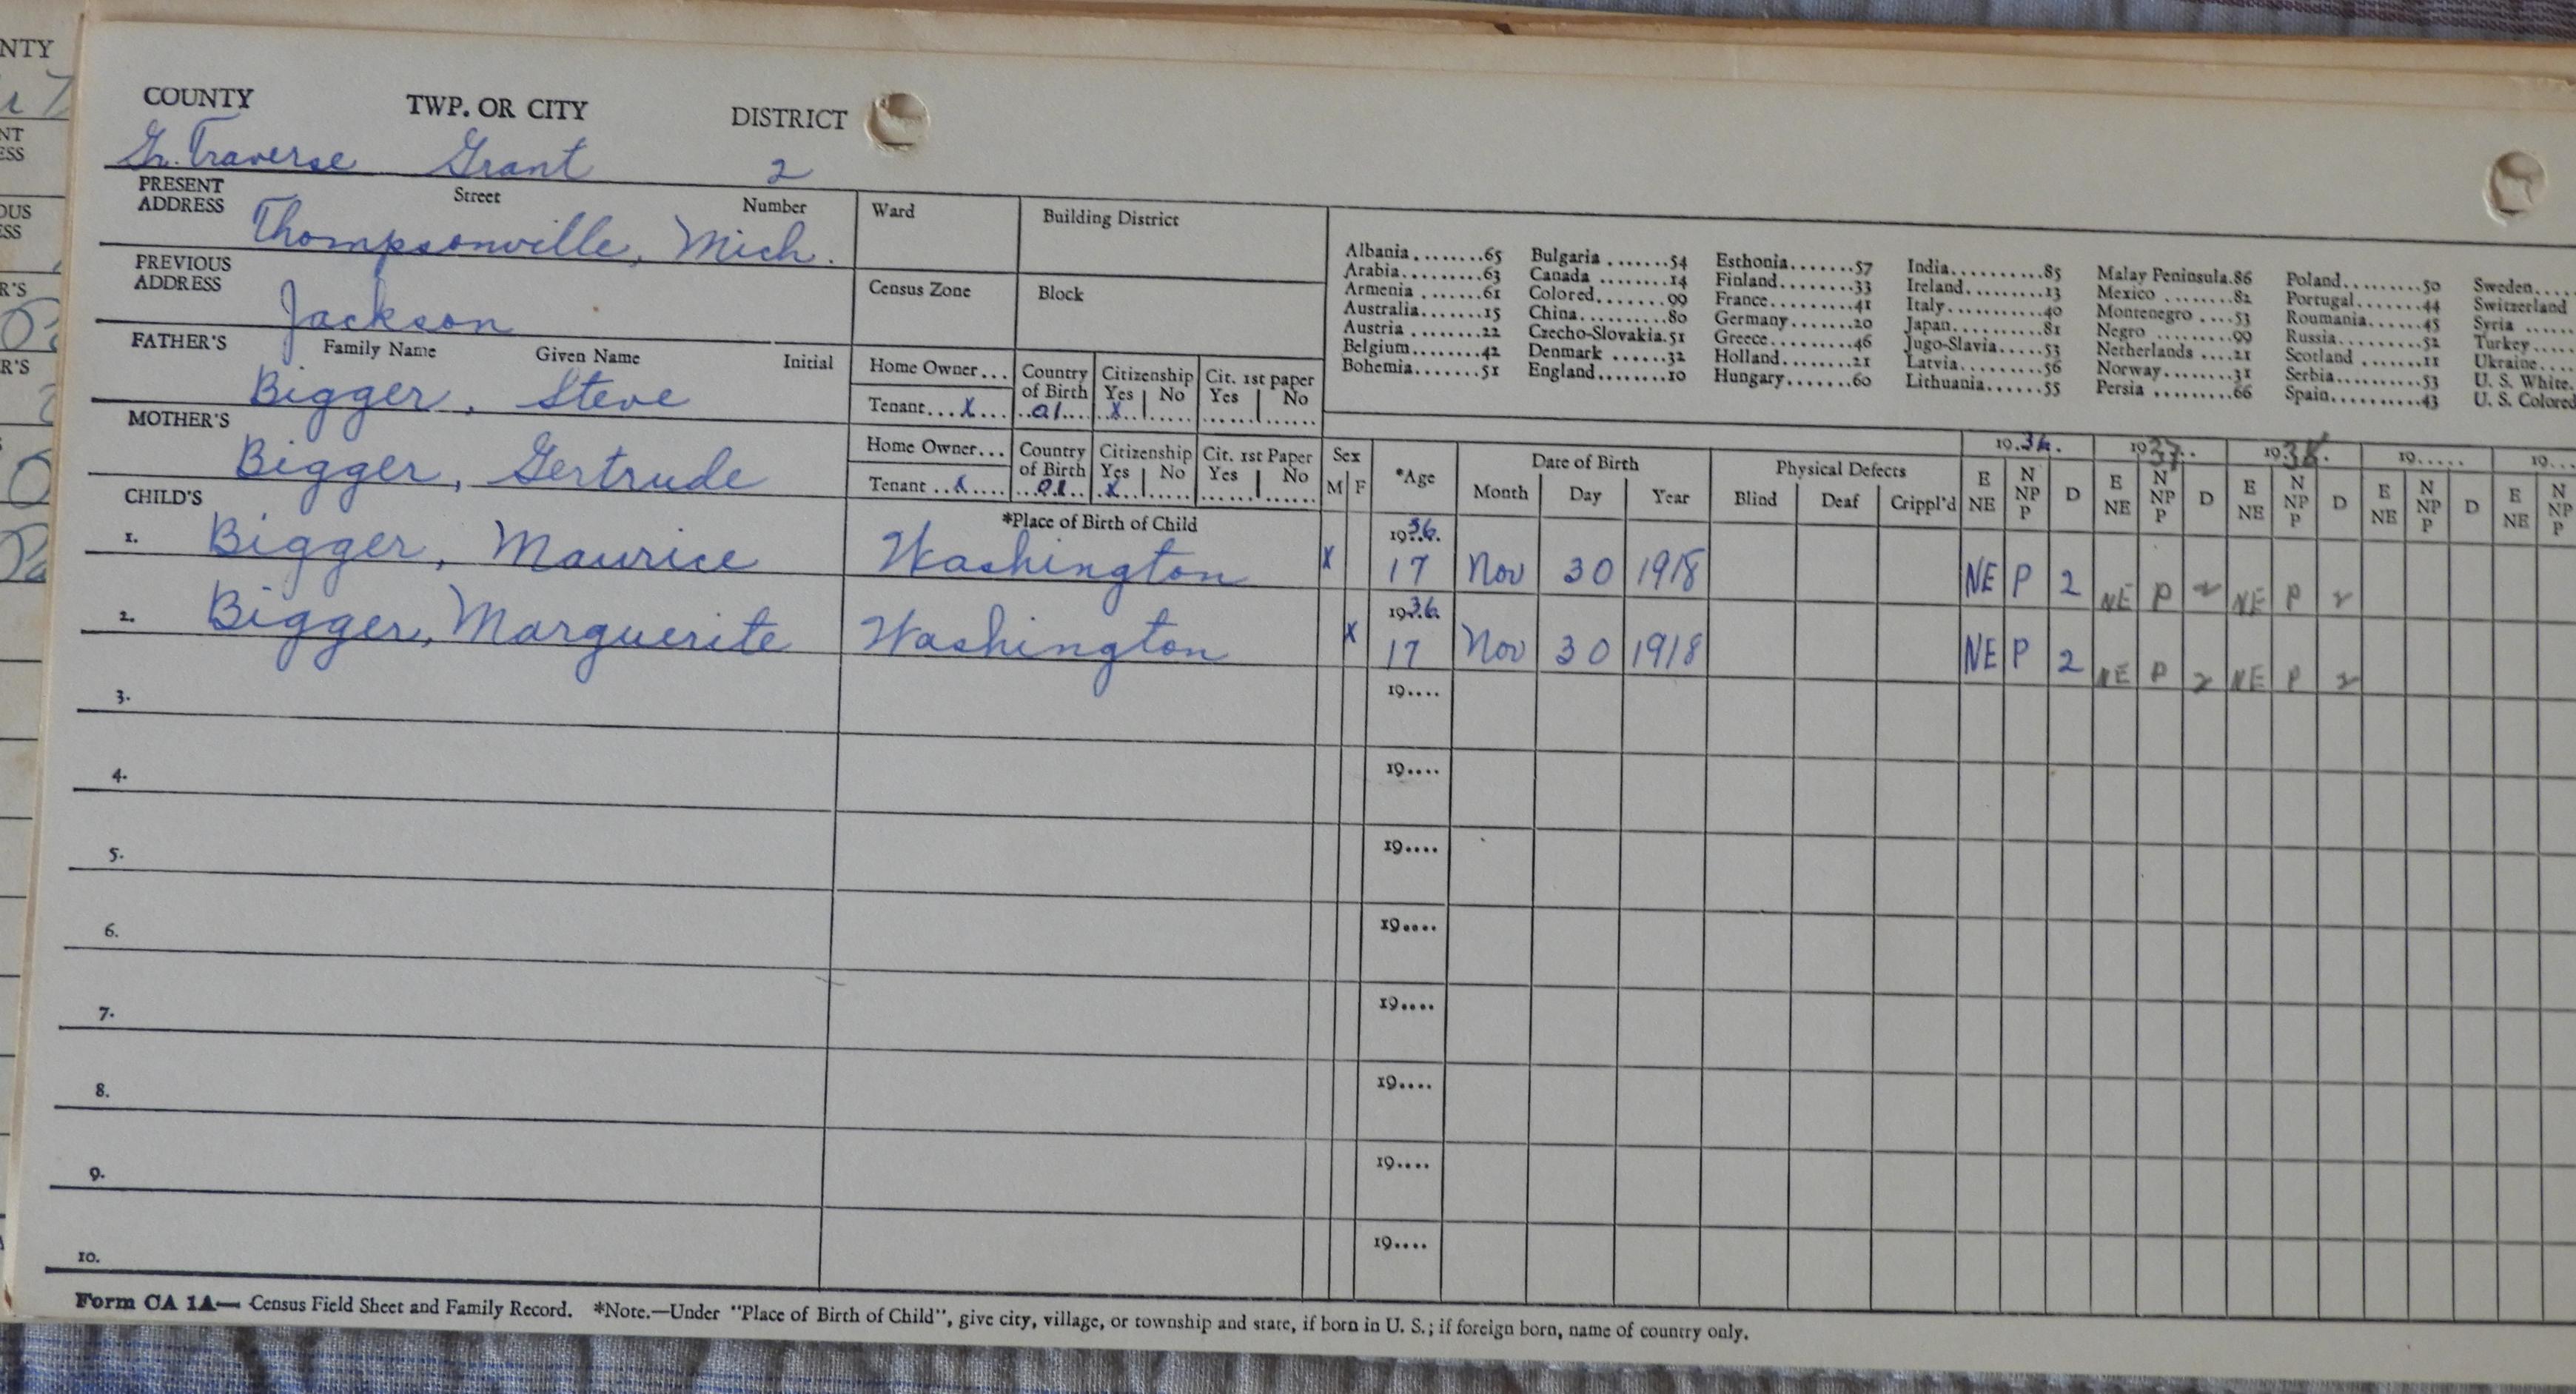 COUNTY TWP. OR CITY DISTRICT
Gr. Traverse Grant 2
PRESENT ADDRESS Street Number
Thompsonville, Mich.
PREVIOUS ADDRESS
Jackson
FATHER'S Family Name Given Name Initial
Bigger, Steve
MOTHER'S
Bigger, Gertrude
CHILD'S
Ward Building District
Census Zone Block
Home Owner... Country of Birth Citizenship Yes No Cit. 1st paper Yes No
Tenant...X.... ..01.... ..X..
Home Owner... Country of Birth Citizenship Yes No Cit. 1st Paper Yes No
Tenant..X.... ...01.. ..X..
Albania........65 Bulgaria.......54 Esthonia.......57 India..........85 Malay Peninsula.86 Poland.........50 Sweden....
Arabia.........63 Canada ........14 Finland........33 Ireland........13 Mexico ........82 Portugal.......44 Switzerland
Armenia .......61 Colored........99 France.........41 Italy..........40 Montenegro ....53 Roumania.......45 Syria .....
Australia......15 China..........80 Germany........20 Japan..........81 Negro .........99 Russia.........52 Turkey....
Austria .......22 Czecho-Slovakia.51 Greece.........46 Jugo-Slavia....53 Netherlands ...21 Scotland ......11 Ukraine....
Belgium........42 Denmark .......32 Holland........21 Latvia.........56 Norway.........31 Serbia.........53 U. S. White.
Bohemia........51 England........10 Hungary........60 Lithuania......55 Persia ........66 Spain..........43 U. S. Colored
*Place of Birth of Child Sex M F *Age Date of Birth Month Day Year Physical Defects Blind Deaf Crippl'd
1936. 1937.. 1938. 19..... 19...
E NE N NP P D E NE N NP P D E NE N NP P D E NE N NP P D E NE N NP P
1. Bigger, Maurice Washington X 1936. 17 Nov 30 1918 NE P 2 NE P 2 NE P 2
2. Bigger, Marguerite Washington X 1936. 17 Nov 30 1918 NE P 2 NE P 2 NE P 2
3. 19....
4. 19....
5. 19....
6. 19....
7. 19....
8. 19....
9. 19....
10. 19....
Form CA 1A— Census Field Sheet and Family Record. *Note.—Under "Place of Birth of Child", give city, village, or township and state, if born in U. S.; if foreign born, name of country only.